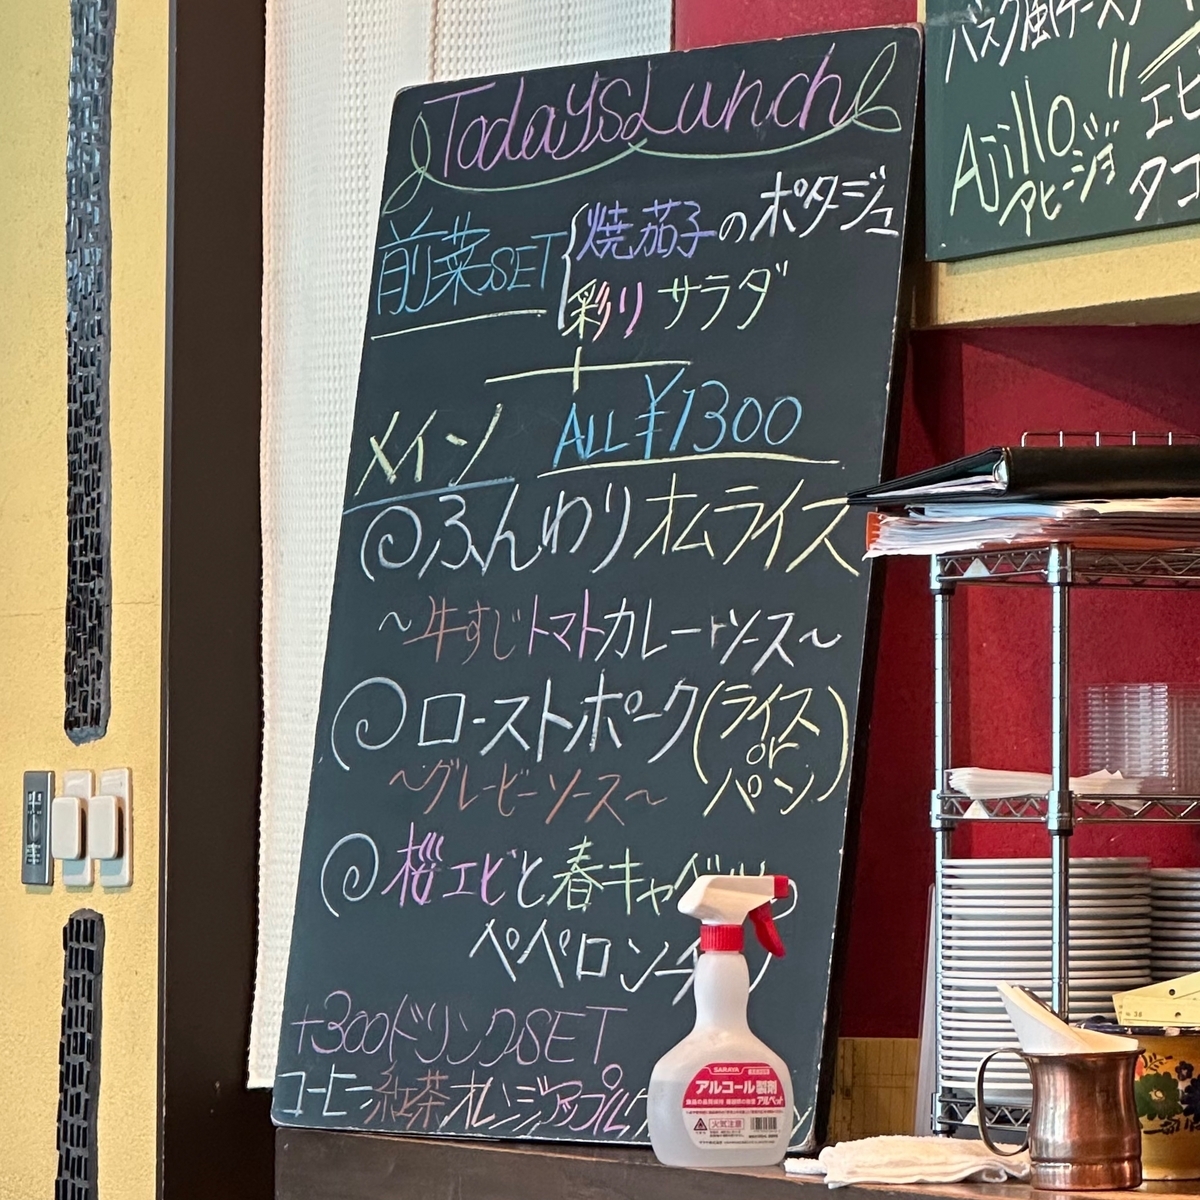 Today's Lunch
前菜SET 焼茄子のポタジュ
彩りサラダ
+
メイン ALL ¥1300
ふんわりオムライス
~牛すじトマトカレーソース~
ローストポーク(ライス or パン)
~グレービーソース~
桜エビと春キャベツの
ペペロンチ
+300ドリンクSET
コーヒー 紅茶 オレンジ アップル
バスク風チーズ
Ajillo
アヒージョ
エビ
タコ
SARAYA
アルコール製剤
アルペット
火気注意